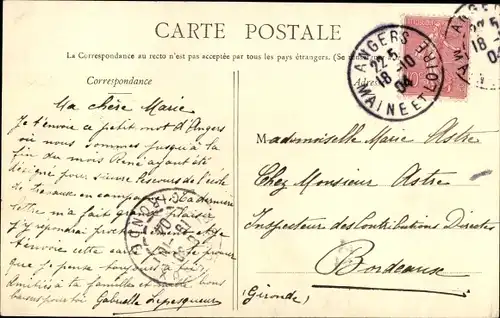 CARTE POSTALE
La Correspondance au recto n'est pas acceptée par tous les pays étrangers. (Se rense
Correspondance
Adres
ANGERS
22 5
18 -10
04
MAINE ET LOIRE
Ma chère Marie
Je t'envoie ce petit mot d'Angers
où nous sommes jusqu'à la
fin du mois René ayant été
désigné pour suivre les cours de l'école
de travaux en campagne. Ta dernière
lettre m'a fait grand plaisir
j'y répondrai prochainement. Je
t'envoie cette carte
que je pense toujours à toi.
Amitiés à ta famille et
baisers pour toi Gabrielle
Mademoiselle Marie Astre
Chez Monsieur Astre
Inspecteur des Contributions Directes
Bordeaux
(Gironde)